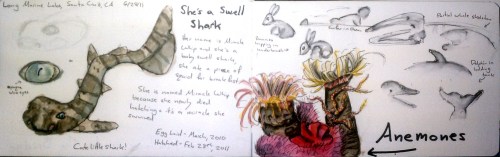 Long Marine Lab, Santa Cruz, CA
She's a Swell
Shark
Her name is Miracle
Whip and she's a
baby swell shark.
She ate a piece of
squid for breakfast.
She is named Miracle Whip
because she nearly died
hatching - it's a miracle she
survived
Egg laid - March, 2010
Hatched - Feb 23rd, 2011
Cute little shark!
Partial whale skeleton
Dolphin in
holding
Anemones